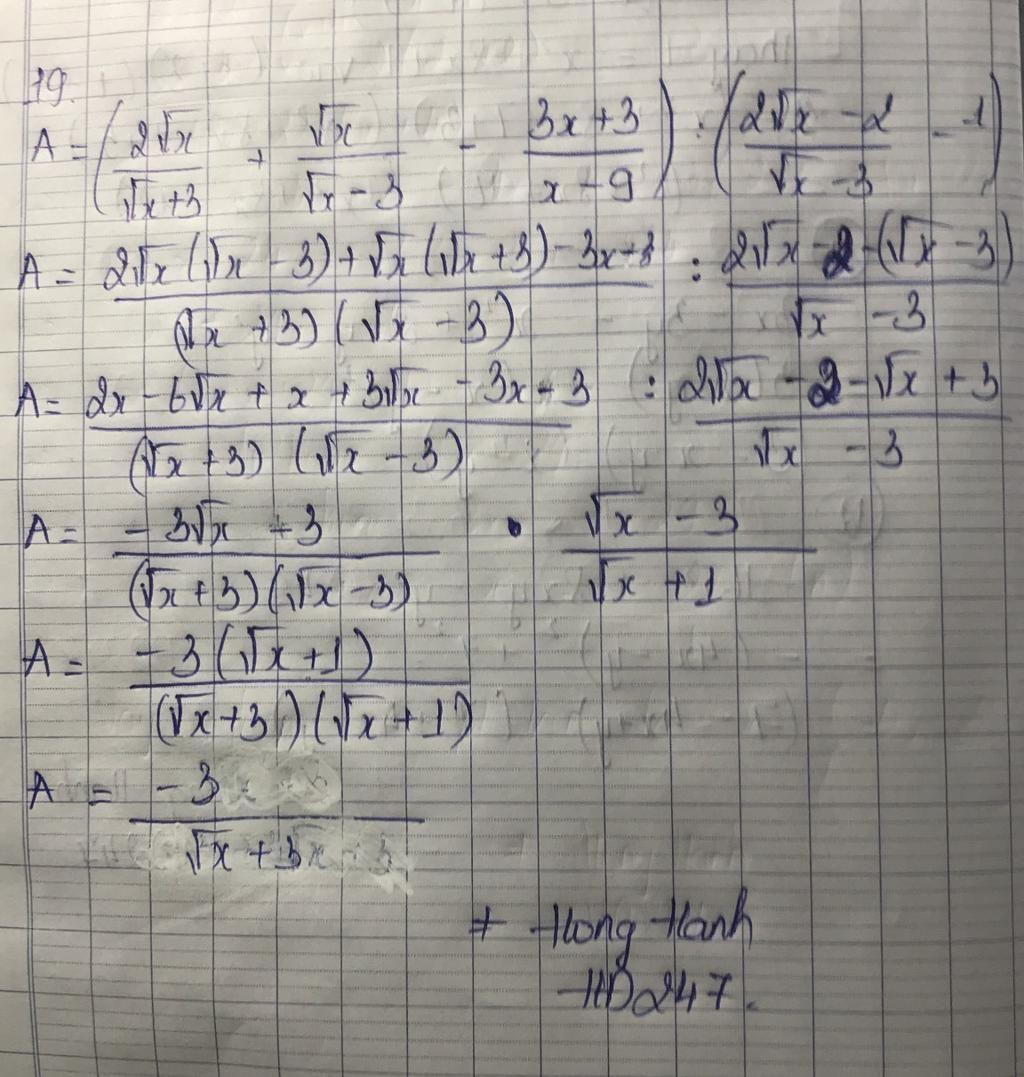 19.
A = (2√x/(√x+3) + √x/(√x-3) - (3x+3)/(x-9)) : ((2√x-2)/(√x-3) - 1)
A = (2√x(√x-3)+√x(√x+3)-3x-3)/((√x+3)(√x-3)) : (2√x-2-(√x-3))/(√x-3)
A = (2x-6√x+x+3√x-3x-3)/((√x+3)(√x-3)) : (2√x-2-√x+3)/(√x-3)
A = (-3√x-3)/((√x+3)(√x-3)) • (√x-3)/(√x+1)
A = -3(√x+1)/((√x+3)(√x+1))
A = -3/(√x+3)
# Hong Hanh
HD247.